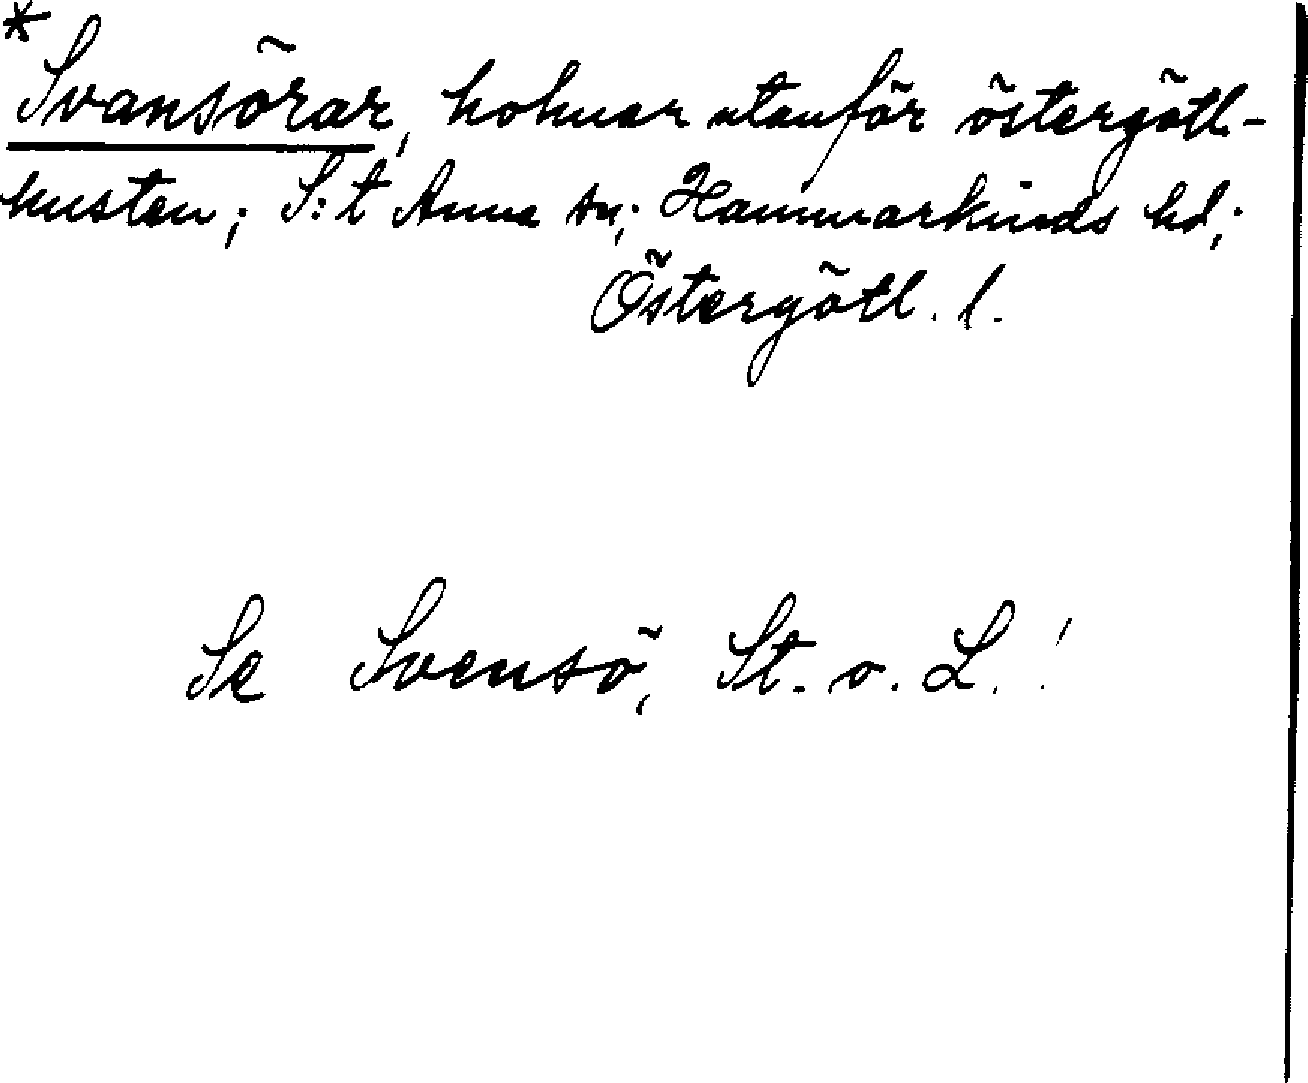 *
Svansörar, holmar utanför östergötl-
kusten; S:t Anna sn; Hammarkinds hd;
Östergötl. l.
Se Svensö, St. o. L.!